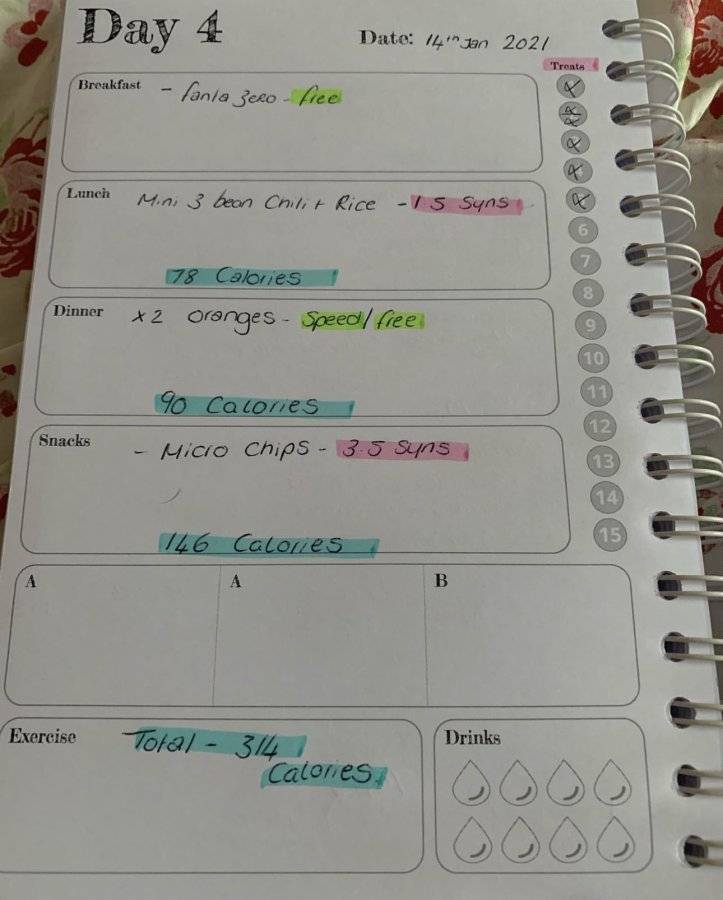 Day 4
Date: 14th Jan 2021
Treats
Breakfast - fanta zero - free
Lunch Mini 3 bean Chili + Rice - 1.5 Syns
78 Calories
Dinner x2 oranges - Speed/free
90 Calories
Snacks - Micro Chips - 3.5 Syns
146 Calories
6
7
8
9
10
11
12
13
14
15
A A B
Exercise Total - 314
Calories.
Drinks